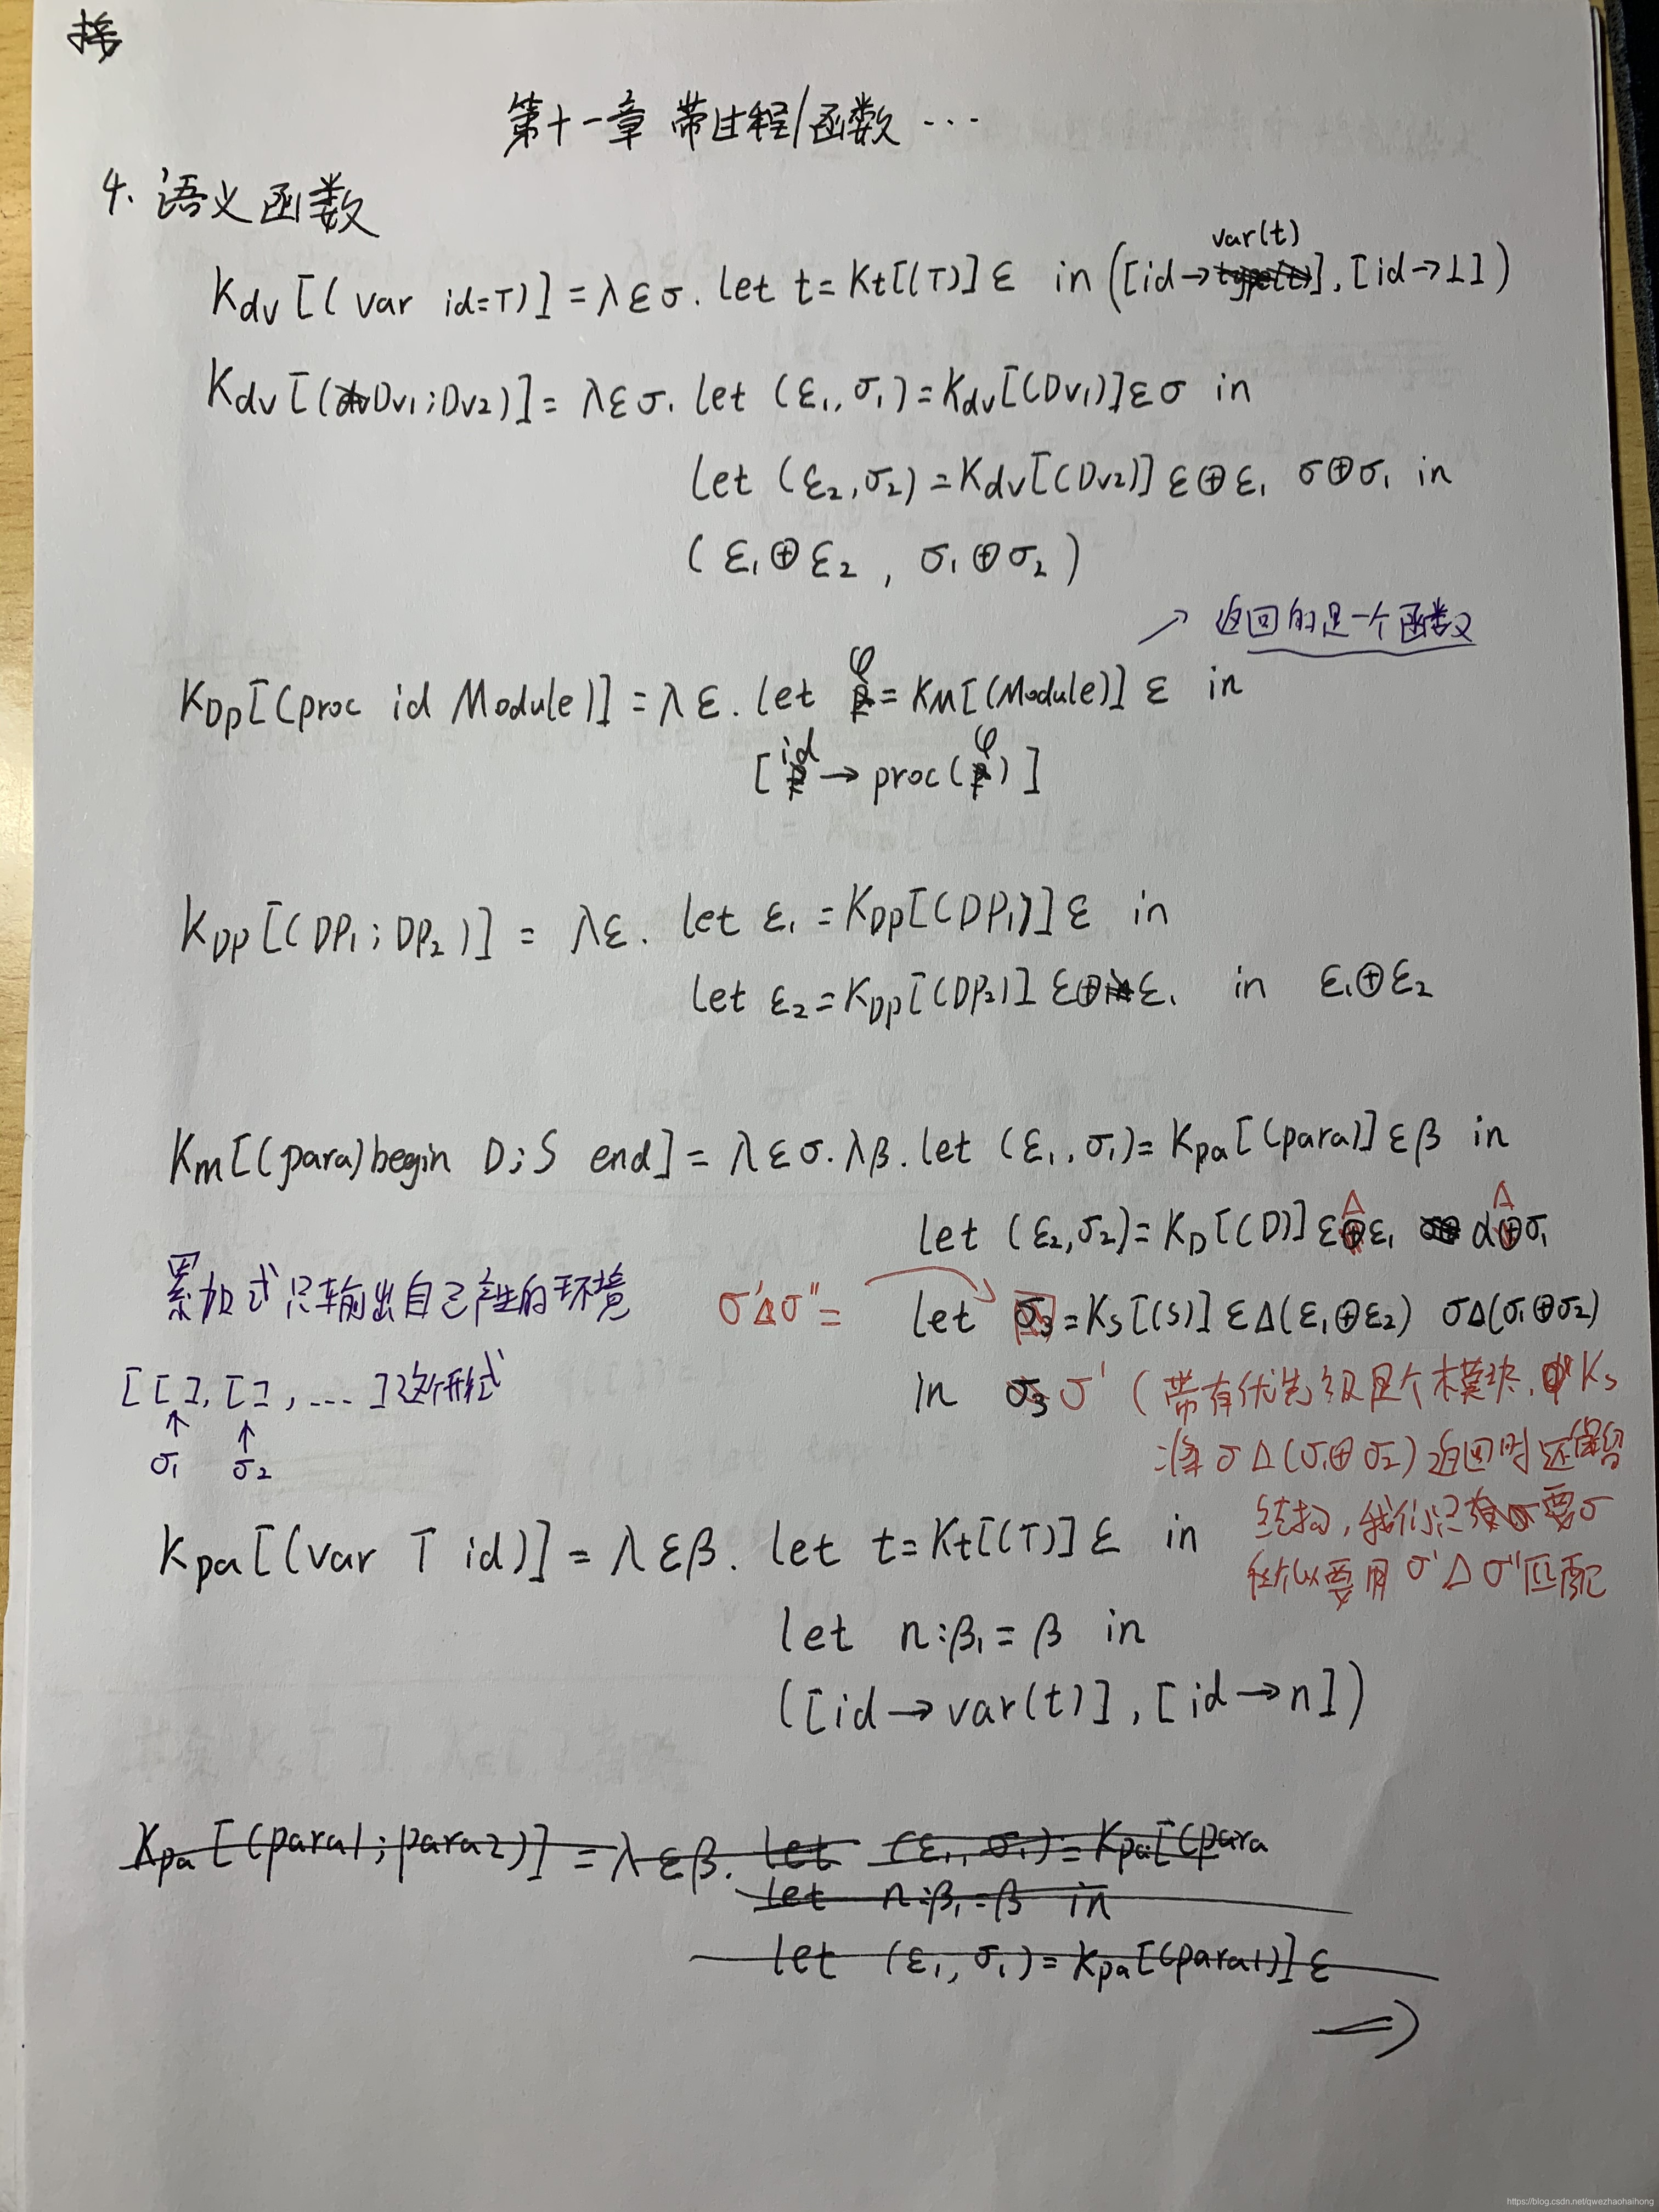 接
第十一章 带过程/函数 ...
4. 语义函数
Kdv[(var id=T)] = λεσ. let t=Kt[(T)]ε in ([id→var(t)], [id→⊥])
Kdv[(Dv1;Dv2)] = λεσ. let (ε₁,σ₁)=Kdv[(Dv1)]εσ in
let (ε₂,σ₂)=Kdv[(Dv2)] ε⊕ε₁ σ⊕σ₁ in
(ε₁⊕ε₂, σ₁⊕σ₂)
→ 返回的是一个函数
KDp[(proc id Module)] = λε. let φ = KM[(Module)] ε in
[id → proc(φ)]
KDp[(DP₁;DP₂)] = λε. let ε₁=KDp[(DP₁)]ε in
let ε₂=KDp[(DP₂)] ε⊕ε₁ in ε₁⊕ε₂
Km[(para)begin D;S end] = λεσ.λβ. let (ε₁,σ₁)=Kpa[(para)]εβ in
let (ε₂,σ₂)=KD[(D)] εΔε₁ dΔσ₁
累加式只输出自己产生的环境
σ'Δσ''= let σ₃=Ks[(S)] εΔ(ε₁⊕ε₂) σΔ(σ₁⊕σ₂)
[[ ], [ ], ...]这个形式
↑ ↑
σ₁ σ₂
in σ' (带有优先级是个模块, Ks
将σΔ(σ₁⊕σ₂)返回时还保留
结构, 我们只要σ
所以要用σ'Δσ''匹配
Kpa[(var T id)] = λεβ. let t=Kt[(T)]ε in
let n:β₁=β in
([id→var(t)], [id→n])
Kpa[(para1;para2)] = λεβ. let (ε₁,σ₁)=Kpa[(para
let n:β₁=β in
let (ε₁,σ₁)=Kpa[(para1)]ε
⇒
https://blog.csdn.net/qwezhaohaihong